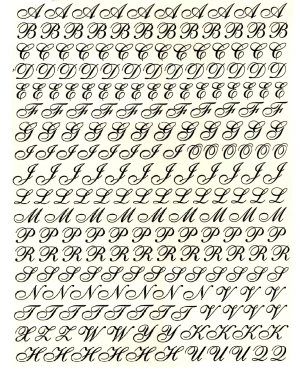 A A A A A A A A A A
B B B B B B B B B B B
C C C C C C C C C C C C C
D D D D D D D D D D D
E E E E E E E E E E E E E E E
F F F F F F F F F F
G G G G G G G G G G G
I I I I I I I O O O O O
J J J J J J J J J J J
L L L L L L L L L L L L L
M M M M M M M M M
P P P P P P P P P P P P P
R R R R R R R R R R R R
S S S S S S S S S S S S
N N N N N N N V V V
T T T T T T T T V V V V
X Z Z W W Y Y K K K K
H H H H H H U U U Q Q